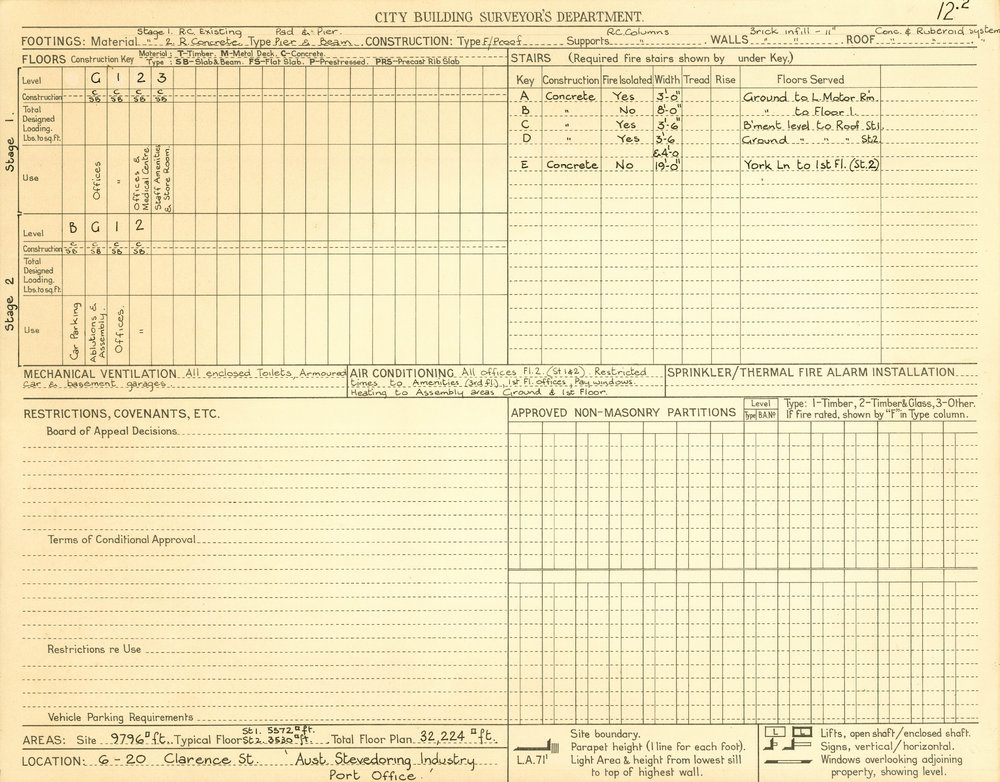 CITY BUILDING SURVEYOR'S DEPARTMENT.
12.2
Stage 1. R.C. Existing Pad & Pier. R.C. Columns Brick infill - 11" Conc. & Ruberoid system
FOOTINGS: Material " 2 R. Concrete Type Pier & Beam CONSTRUCTION: Type F/Proof Supports " WALLS " " ROOF " " "
FLOORS Construction Key Material: T-Timber, M-Metal Deck, C-Concrete.
Type: SB-Slab & Beam. FS-Flat Slab. P-Prestressed. PRS-Precast Rib Slab
Stage 1.
Level G 1 2 3
Construction C/SB C/SB C/SB
Total Designed Loading. Lbs. to sq. ft.
Use Offices " Offices & Medical Centre Staff Amenities & Store Room.
Stage 2
Level B G 1 2
Construction C/SB C/SB C/SB C/SB
Total Designed Loading. Lbs. to sq. ft.
Use Car Parking Ablutions & Assembly. Offices. "
STAIRS (Required fire stairs shown by under Key.)
Key Construction Fire Isolated Width Tread Rise Floors Served
A Concrete Yes 3'-0" Ground to L. Motor R'm.
B " No 8'-0" " to Floor 1.
C " Yes 3'-6" B'ment level to Roof St1.
D " Yes 3'-6 Ground " " " St2.
& 4'-0
E Concrete No 19'-0" York Ln to 1st Fl. (St.2)
MECHANICAL VENTILATION All enclosed Toilets, Armoured
Car & basement garages.
AIR CONDITIONING All offices Fl. 2. (St 1&2). Restricted
times to Amenities (3rd fl.), 1st Fl. offices, Pay windows.
Heating to Assembly areas Ground & 1st Floor.
SPRINKLER/THERMAL FIRE ALARM INSTALLATION
RESTRICTIONS, COVENANTS, ETC.
Board of Appeal Decisions.
Terms of Conditional Approval
Restrictions re Use
Vehicle Parking Requirements
APPROVED NON-MASONRY PARTITIONS
Level
Type B.A.No
Type: 1-Timber, 2-Timber & Glass, 3-Other.
If Fire rated, shown by "F" in Type column.
AREAS: Site 9796 □ ft. Typical Floor St 1. 5572 □ ft. St 2. 3530 □ ft. Total Floor Plan 32,224 □ ft.
LOCATION: 6 - 20 Clarence St. ' Aust. Stevedoring Industry
Port Office'
L.A. 71'
Site boundary.
Parapet height (1 line for each foot).
Light Area & height from lowest sill
to top of highest wall.
L L
Lifts, open shaft/enclosed shaft.
Signs, vertical/horizontal.
Windows overlooking adjoining
property, showing level.